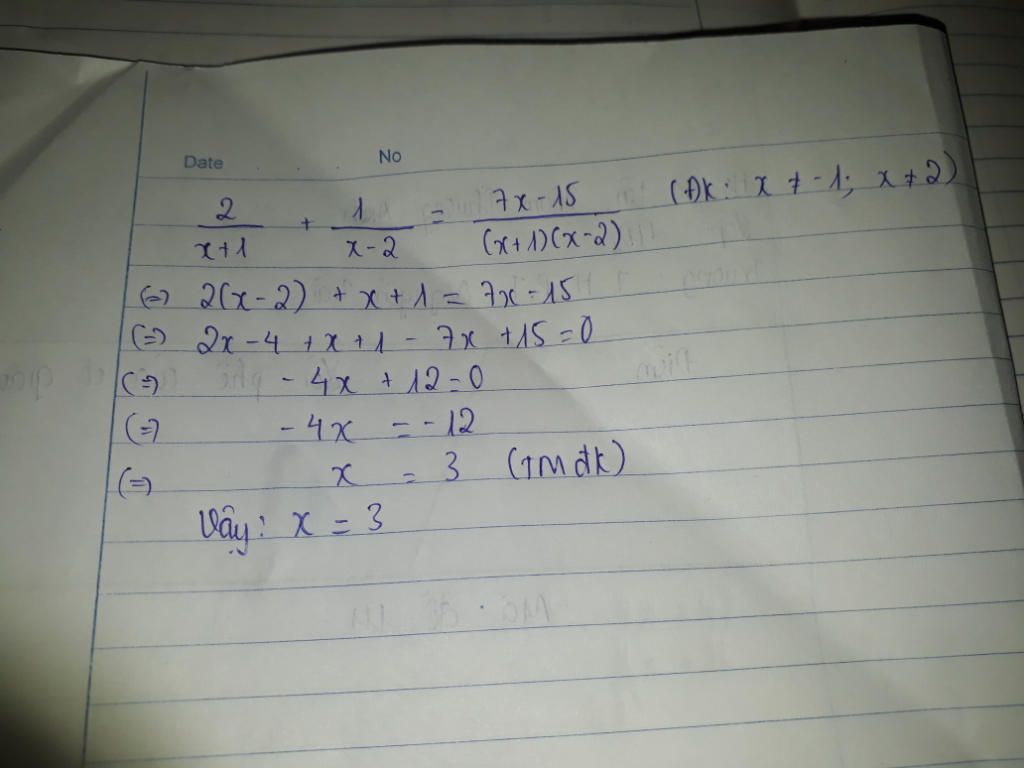 Date No
2/(x+1) + 1/(x-2) = (7x-15)/((x+1)(x-2)) (Đk: x ≠ -1; x ≠ 2)
(=) 2(x-2) + x+1 = 7x-15
(=) 2x-4 +x+1 - 7x +15=0
(=) -4x + 12=0
(=) -4x = -12
(=) x = 3 (TM đk)
Vậy: x = 3